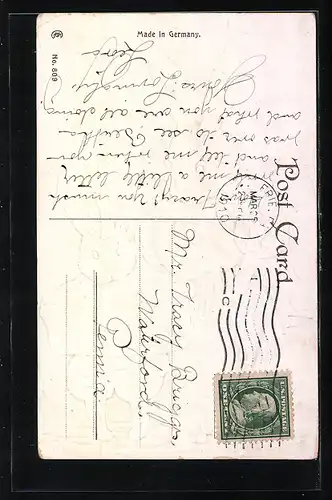 Made in Germany.
No. 809
Post Card
ERIE, P
MAR 25
1910
Tracy You must
write me a little letter
and tell me when you
was over to see Bertha
and what you are all doing
Yours Lovingly
Leora
Mr. Tracy Briggs,
Waterford
Penna
U.S. POSTAGE